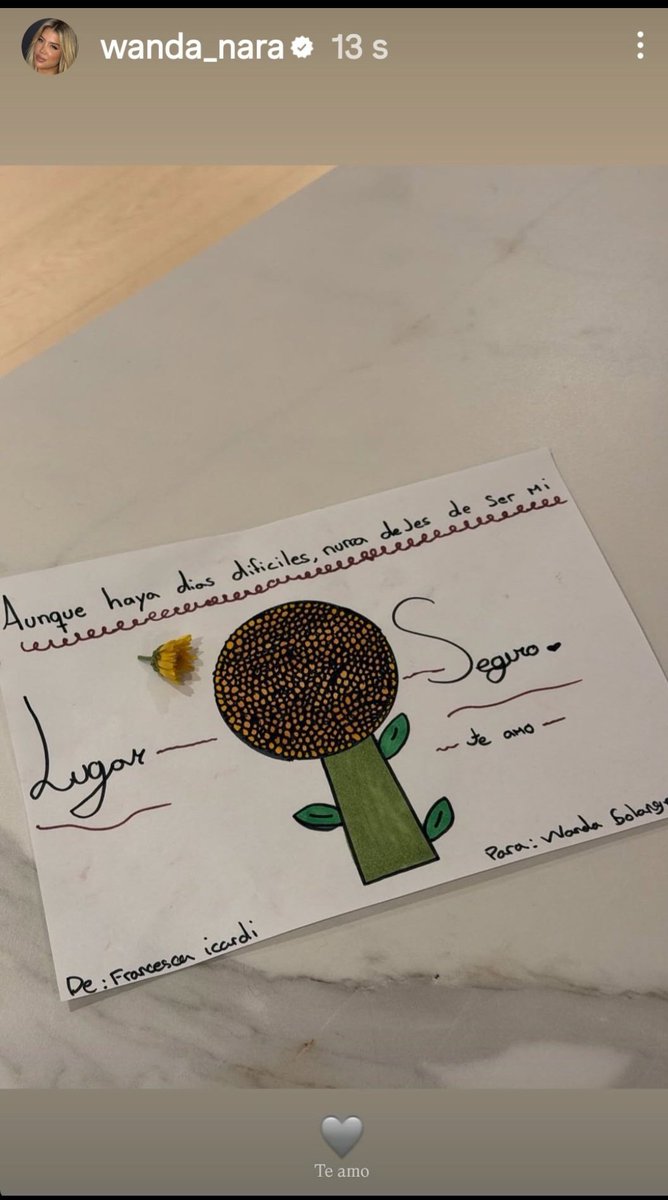 wanda_nara 13 s
Aunque haya dias dificiles, nunca dejes de ser mi
Lugar Seguro
te amo
Para: Wanda Solange
De: Francesca icardi
Te amo